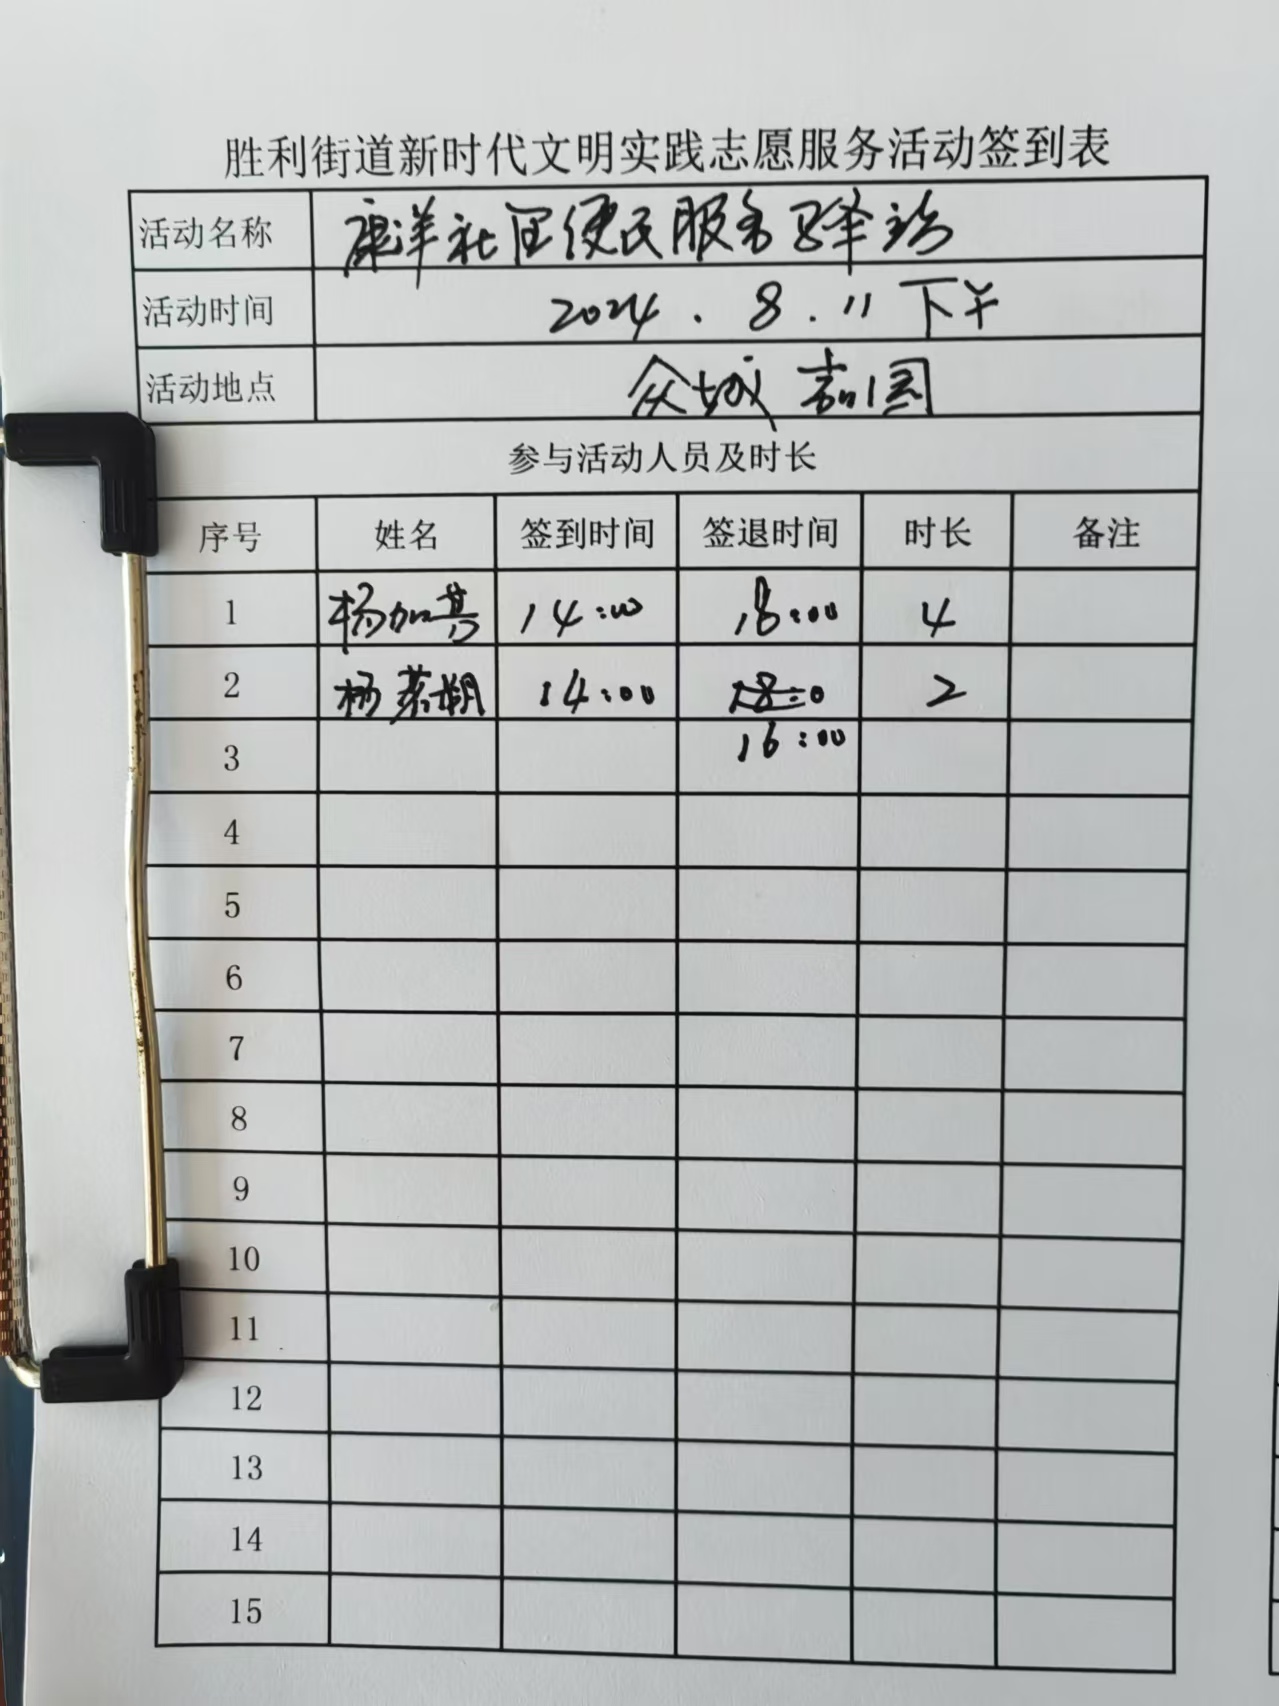 胜利街道新时代文明实践志愿服务活动签到表
活动名称 康洋社区便民服务驿站
活动时间 2024.8.11下午
活动地点 众城嘉园
参与活动人员及时长
序号 姓名 签到时间 签退时间 时长 备注
1 杨加 14:00 18:00 4
2 杨慕朔 14:00 18:0 2
3 16:00
4
5
6
7
8
9
10
11
12
13
14
15